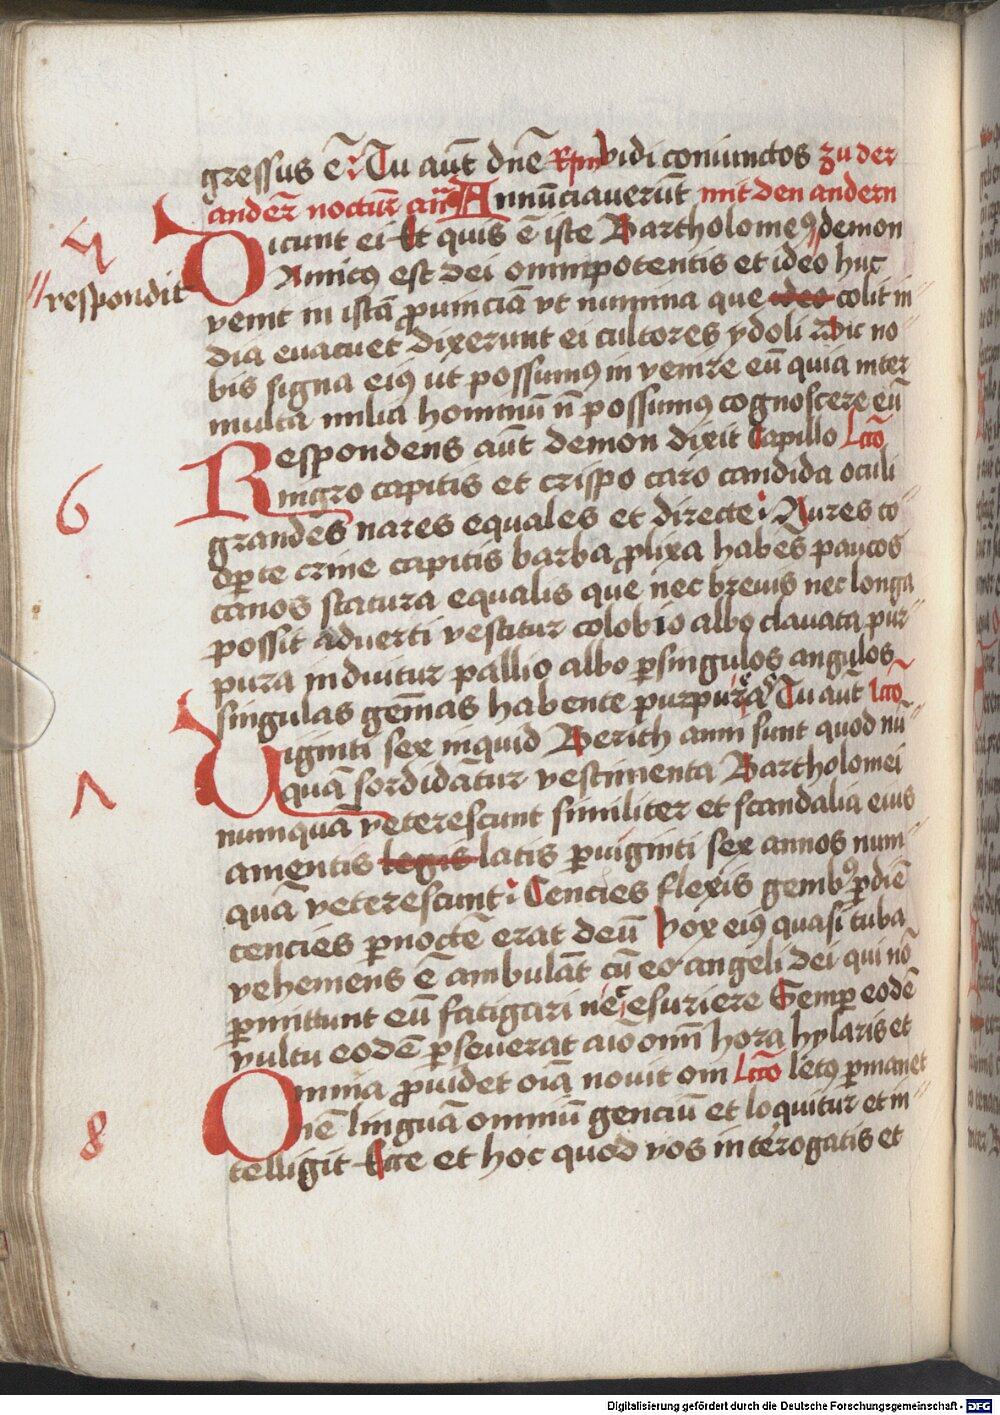 gressus ē Tu aūt dnē Rm̄ vidi coniunctos zu der
ander nocturn an̄ Annūciaverūt mit den andern
5 Dicunt ei Et quis ē iste Bartholomeꝯ // demon
// respondit Amicꝯ est dei omnipotentis et ideo huc
venit in istā ꝓuinciā vt numina que ideo colit in
dia euacuet dixerunt ei cultores ydoli Dic no
bis signa eiꝯ ut possumꝯ invenire eū quia inter
multa milia hominū n̄ possumus cognoscere eū
6 Respondens aūt demon dixit Capillo Lc̄o
nigro capitis et crispo caro candida oculi
grandes nares equales et directe Aures co
oꝑte crine capitis barba ꝓlixa habes paucos
canos statura equalis que nec breuis nec longa
possit aduerti vestitur colobio albo clauata pur
pura induitur pallio albo ꝑ singulos angulos
singulas gemās habente purpura Tu aūt lc̄o
7 Viginti sex inquid Berith anni sunt quod nū
quā sordidātur vestimenta Bartholomei
numquā veterescunt similiter et scandalia eius
amentis legis latis ꝑ viginti sex annos num
quā veterescunt Cencies flexis genibꝯ ꝑ diē
cencies ꝑ noctē erat deū Vox eiꝯ quasi tuba
vehemens ē ambulāt cū eo angeli dei qui nō
ꝑmittunt eū fatigari nec esuriere Semꝑ eodē
vultu eodē ꝑseuerat aīo omni hora hylaris et
8 Omnia ꝓuidet oīa novit om Lc̄o letꝯ ꝑmanet
niē linguā omniū genciū et loquitur et in
telligit Ecce et hoc quod vos interogatis et
Digitalisierung gefördert durch die Deutsche Forschungsgemeinschaft - DFG